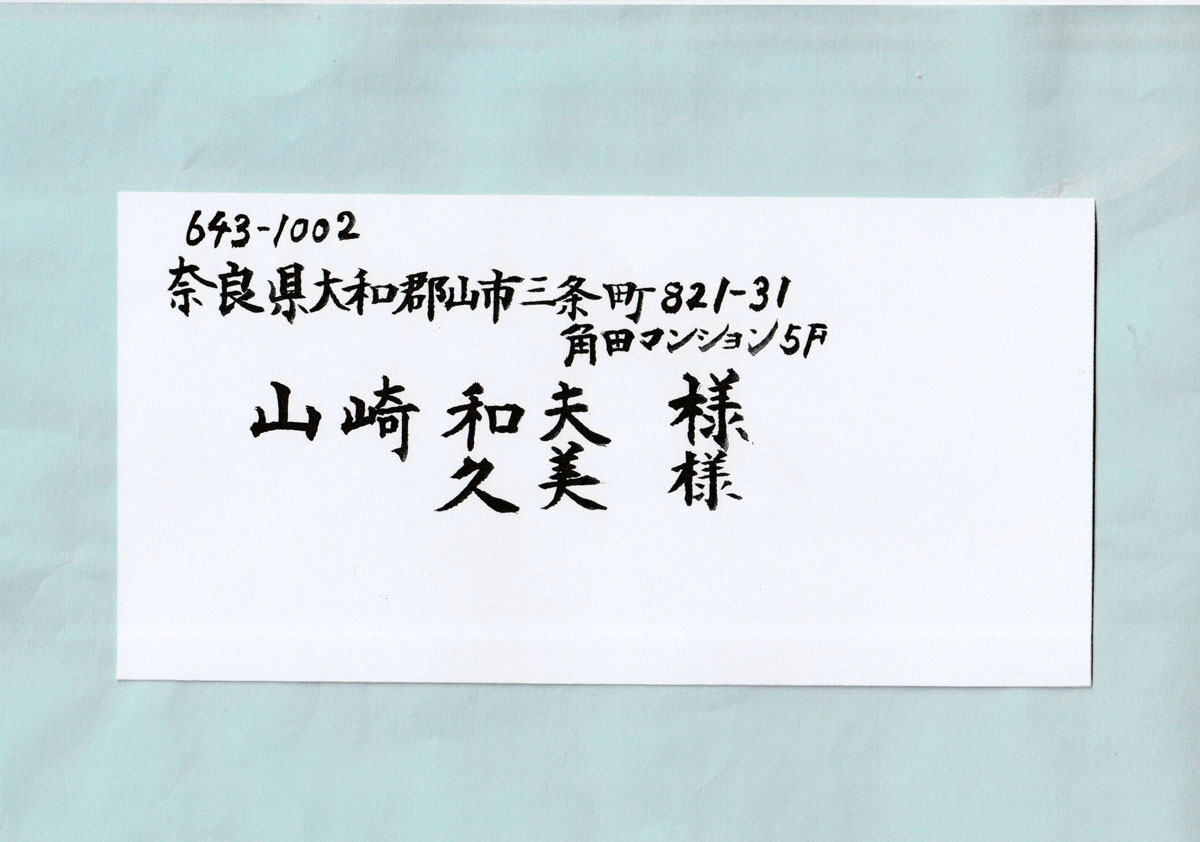 643-1002
奈良県大和郡山市三条町821-31
角田マンション5F
山崎 和夫 様
久美 様